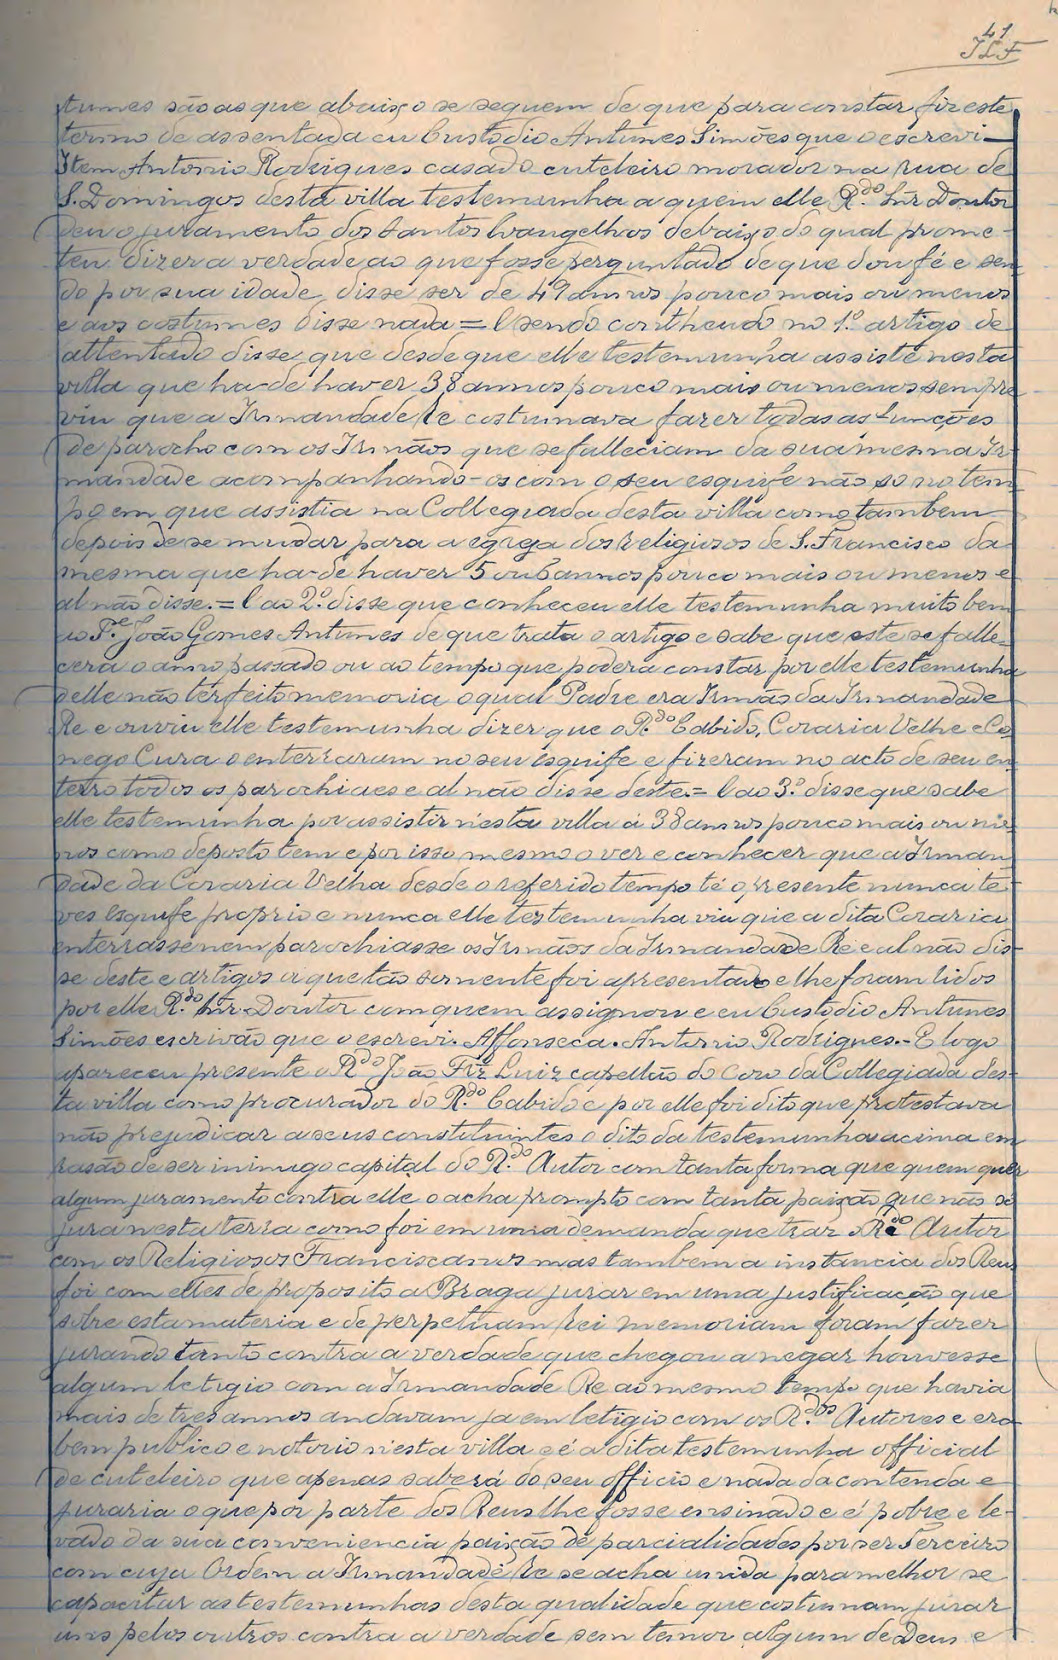 41
JLF
tumes são as que abaixo se seguem de que para constar fiz este
termo de assentada eu Custodio Antunes Simões que o escrevi —
Item Antonio Rodrigues casado cuteleiro morador na rua de
S. Domingos desta villa testemunha a quem elle R.do Snr Doutor
deu o juramento dos Santos Evangelhos debaixo do qual prome-
teu dizer a verdade ao que fosse perguntado de que dou fé e sen
do por sua idade disse ser de 49 annos pouco mais ou menos
e aos costumes disse nada = E sendo contheudo no 1.º artigo de
attentado disse que desde que elle testemunha assiste nesta
villa que ha-de haver 38 annos pouco mais ou menos sempre
viu que a Irmandade Re costumava fazer todas as funcções
de parocho com os Irmãos que se falleciam da sua mesma Ir-
mandade acompanhando-os com o seu esquife não só no tem
po em que assistia na Collegiada desta villa como tambem
depois de se mudar para a egreja dos Religiosos de S. Francisco da
mesma que ha-de haver 5 ou 6 annos pouco mais ou menos e
al não disse. = E ao 2.º disse que conheceu elle testemunha muito bem
ao P.e João Gomes Antunes de que trata o artigo e sabe que este se falle-
cera o anno passado ou ao tempo que poderá constar por elle testemunha
delle não ter feito memoria o qual Padre era Irmão da Irmandade
Re e ouviu elle testemunha dizer que o R.do Cabido, Coraria Velhe e Co
nego Cura o enterraram no seu esquife e fizeram no acto de seu en
terro todos os parochiaes e al não disse deste. = E ao 3.º disse que sabe
elle testemunha por assistir n'esta villa á 38 annos pouco mais ou me
nos como deposto tem e por isso mesmo o ver e conhecer que a Irman
dade da Coraria Velha desde o referido tempo té o presente nunca te-
ves esquife proprio e nunca elle testemunha viu que a dita Coraria
enterrasse nem parochiasse os Irmãos da Irmandade Re e al não dis-
se deste e artigos a que tão somente foi apresentado e lhe foram lidos
por elle R.do Snr. Doutor com quem assignou e eu Custodio Antunes
Simões escrivão que o escrevi. Affonseca. Antonio Rodrigues. - E logo
apareceu presente o R.do João Frz Luiz capellão do Coro da Collegiada des-
ta villa como procurador do R.do Cabido e por elle foi dito que protestava
não prejudicar a seus constituintes o dito da testemunha acima em
rasão de ser inimigo capital do R.do Autor com tanta forma que quem quer
algum juramento contra elle o acha prompto com tanta paixão que não só
jura nesta terra como foi em uma demanda que traz o R.do Autor
com os Religiosos Franciscanos mas tambem a instancia dos Reus
foi com elles de proposito a Braga jurar em uma justificação que
sobre esta materia e de perpetuam rei memoriam foram fazer
jurando tanto contra a verdade que chegou a negar houvesse
algum letigio com a Irmandade Re ao mesmo tempo que havia
mais de tres annos andavam ja em letigio com os R.dos Autores e era
bem publico e notorio n'esta villa e é a dita testemunha official
de cuteleiro que apenas saberá do seu officio e nada da contenda e
juraria o que por parte dos Reus lhe fosse ensinado e é pobre e le-
vado da sua conveniencia paixão de parcialidades por ser Terceiro
com cuja Ordem a Irmandade Re se acha unida para melhor se
capacitar as testemunhas desta qualidade que costumam jurar
uns pelos outros contra a verdade sem temor algum de Deus e